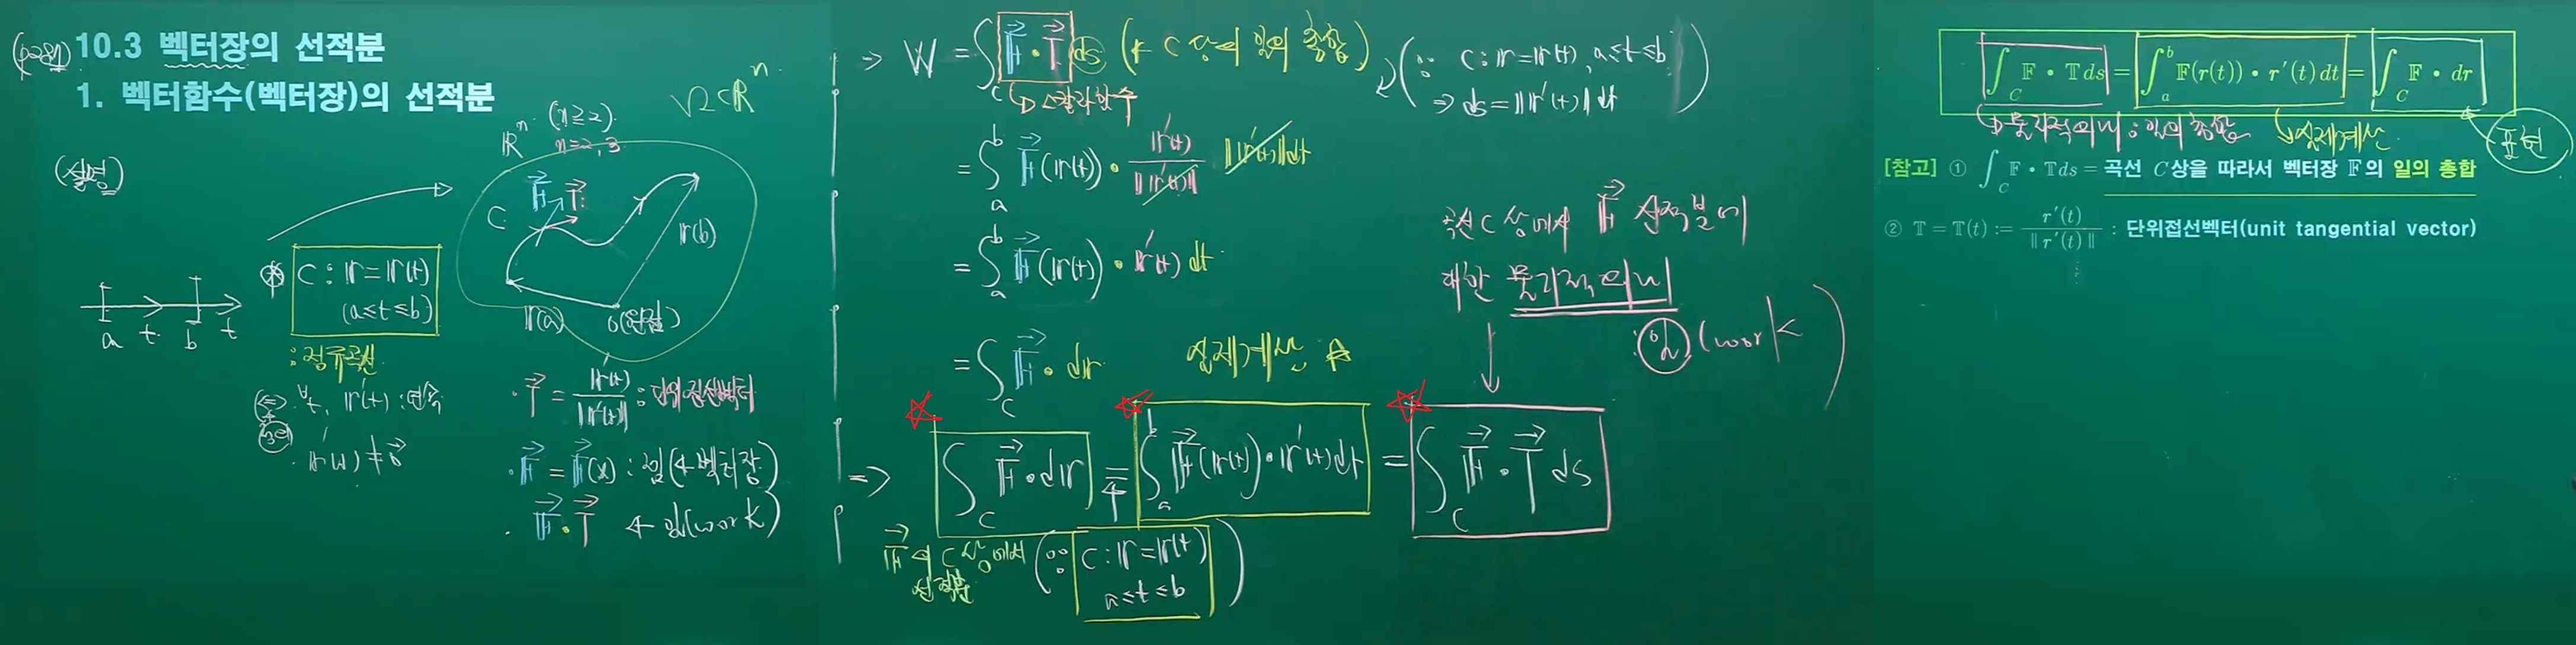 10.3 벡터장의 선적분
1. 벡터함수(벡터장)의 선적분
Ω⊂ℝⁿ
ℝⁿ (n≥2)
n=2, 3
(설명)
C
F⃗ T⃗
r(b)
r(a) 0(원점)
a t b t
⊛ C : r = r(t)
(a≤t≤b)
: 정규곡선
r'(t) : 연속
r'(t) ≠ 0⃗
· T⃗ = r'(t)/‖r'(t)‖ : 단위접선벡터
· F⃗ = F⃗(x) : 힘(← 벡터장)
· F⃗ · T⃗ ← 일(work)
⇒ W = ∫_C F⃗ · T⃗ ds (← C 상의 일의 총합)
↳ 스칼라함수
(∵ C : r = r(t), a≤t≤b
⇒ ds = ‖r'(t)‖dt)
= ∫_a^b F⃗(r(t)) · r'(t)/‖r'(t)‖ ‖r'(t)‖dt
= ∫_a^b F⃗(r(t)) · r'(t) dt
= ∫_C F⃗ · dr 실제계산 ☆
곡선 C 상에서 F⃗ 선적분에
대한 물리적 의미
: 일 (work)
⇒ ∫_C F⃗ · dr = ∫_a^b F⃗(r(t)) · r'(t)dt = ∫_C F⃗ · T⃗ ds
F⃗의 C 상에서
선적분
(∵ C : r = r(t)
a≤t≤b)
∫_C F · T ds = ∫_a^b F(r(t)) · r'(t) dt = ∫_C F · dr
↳ 물리적의미 : 일의 총합 ↳ 실제계산
표현
[참고] ① ∫_C F · T ds = 곡선 C상을 따라서 벡터장 F의 일의 총합
② T = T(t) := r'(t)/‖r'(t)‖ : 단위접선벡터(unit tangential vector)